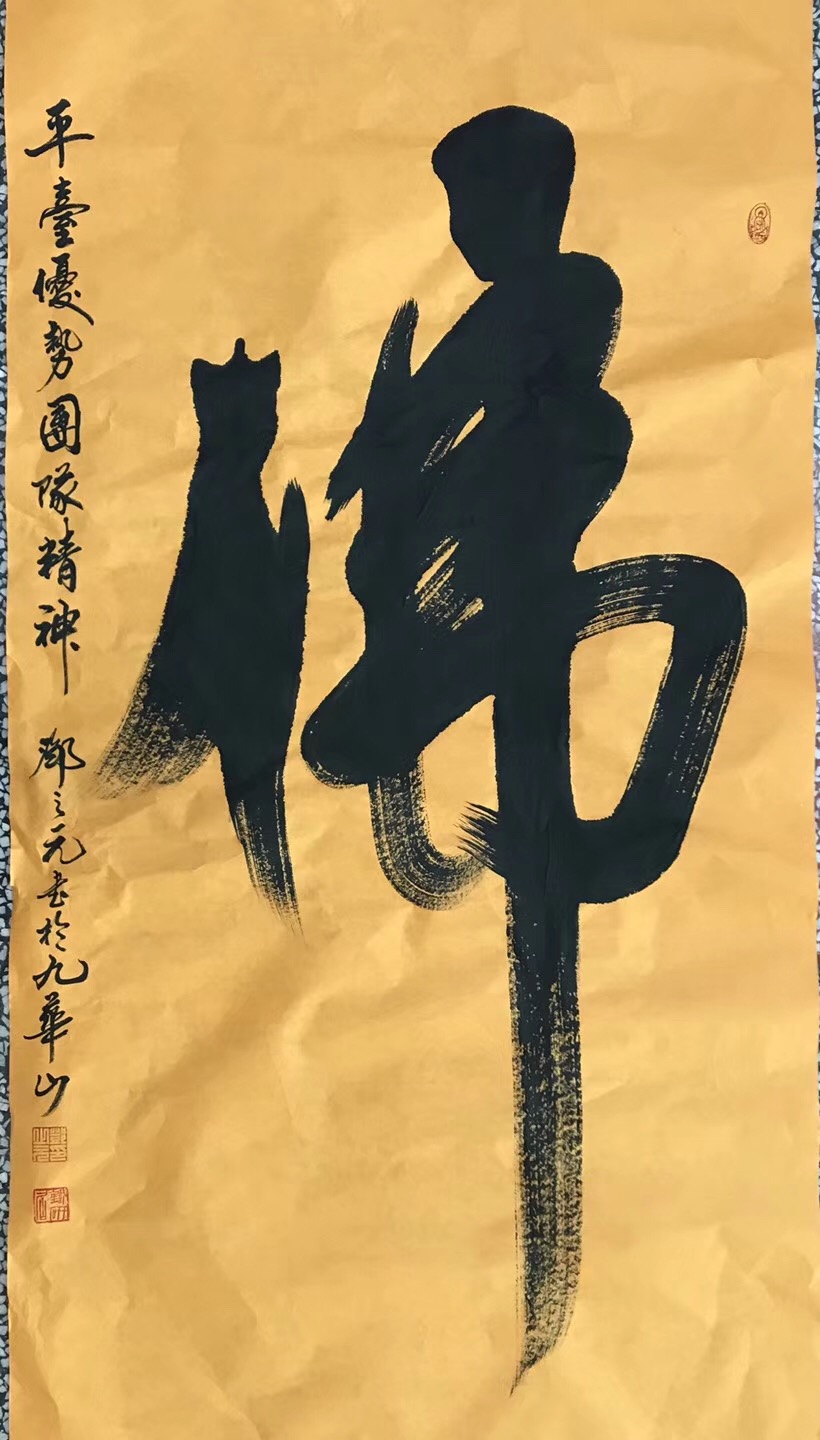 佛
平臺優勢團隊精神 之元書於九華山